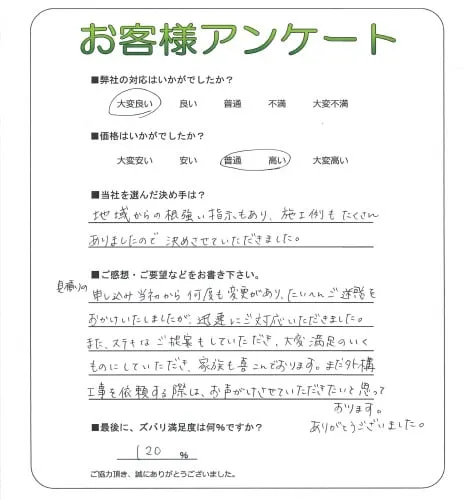 お客様アンケート
■弊社の対応はいかがでしたか？
大変良い 良い 普通 不満 大変不満
■価格はいかがでしたか？
大変安い 安い 普通 高い 大変高い
■当社を選んだ決め手は？
地域からの根強い指示もあり、施工例もたくさん
ありましたので決めさせていただきました。
■ご感想・ご要望などをお書き下さい。
見積りの
申し込み当初から何度も変更があり、たいへんご迷惑を
おかけいたしましたが、迅速にご対応いただきました。
また、ステキなご提案もしていただき、大変満足のいく
ものにしていただき、家族も喜こんでおります。また外構
工事を依頼する際は、お声がけさせていただきたいと思って
おります。
ありがとうございました。
■最後に、ズバリ満足度は何%ですか？
120 %
ご協力頂き、誠にありがとうございました。